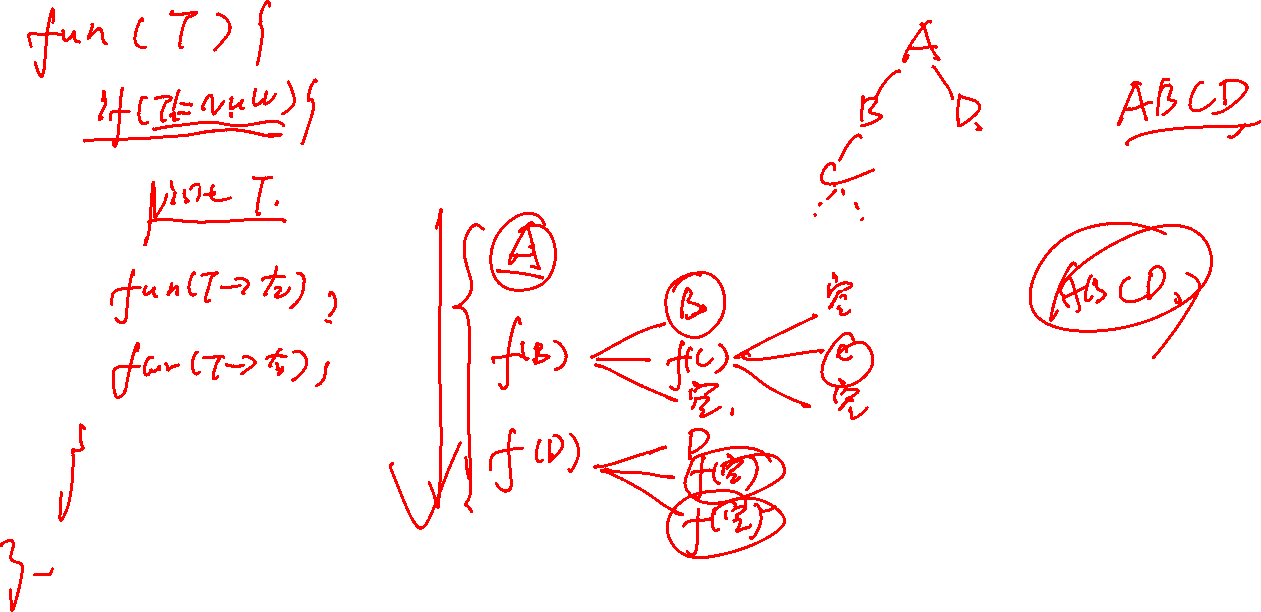 fun(T){
if(T!=NULL){
print T.
fun(T->左);
fun(T->右);
}
}
A
B D.
C
ABCD
ABCD.
A
f(B)
B
f(C)
空.
空
C
空
f(D)
D
f(空)
f(空)